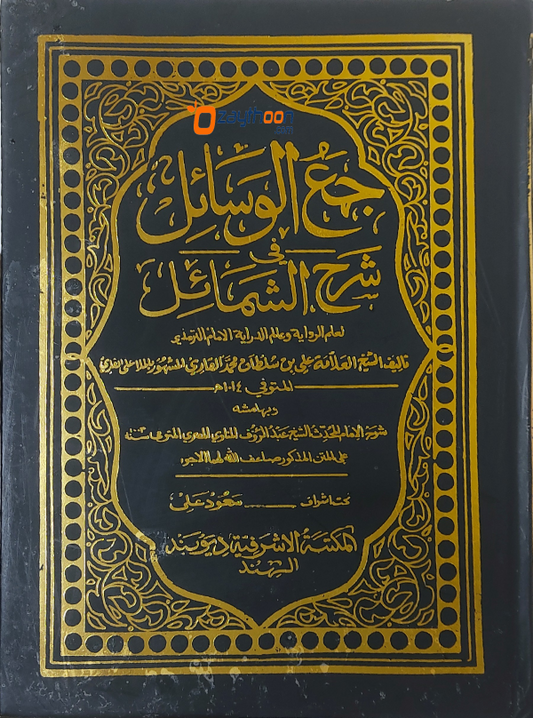 Zaythoon
جمع الوسائل
في
شرح الشمائل
لعلم الرواية وعالم الدراية الامام الترمذي
تاليف الشيخ العلامة علي بن سلطان محمد القاري المشهور بالملا علي القاري
المتوفي ١٠١٤هـ
وبهامشه
شرح الإمام المحدث الشيخ عبد الرؤف المناوي المصري المتوفى سنة
على المتن المذكور ضاعف الله لهما الاجر
تحت اشراف ـــــ سعود علي
المكتبة الاشرفية ديوبند
الهند